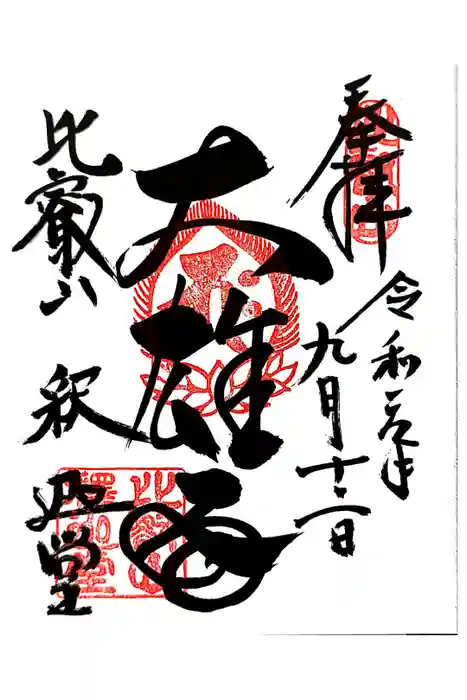 奉拝
令和元年
九月十二日
大雄殿
比叡山
釈迦堂
比叡山
釋迦堂